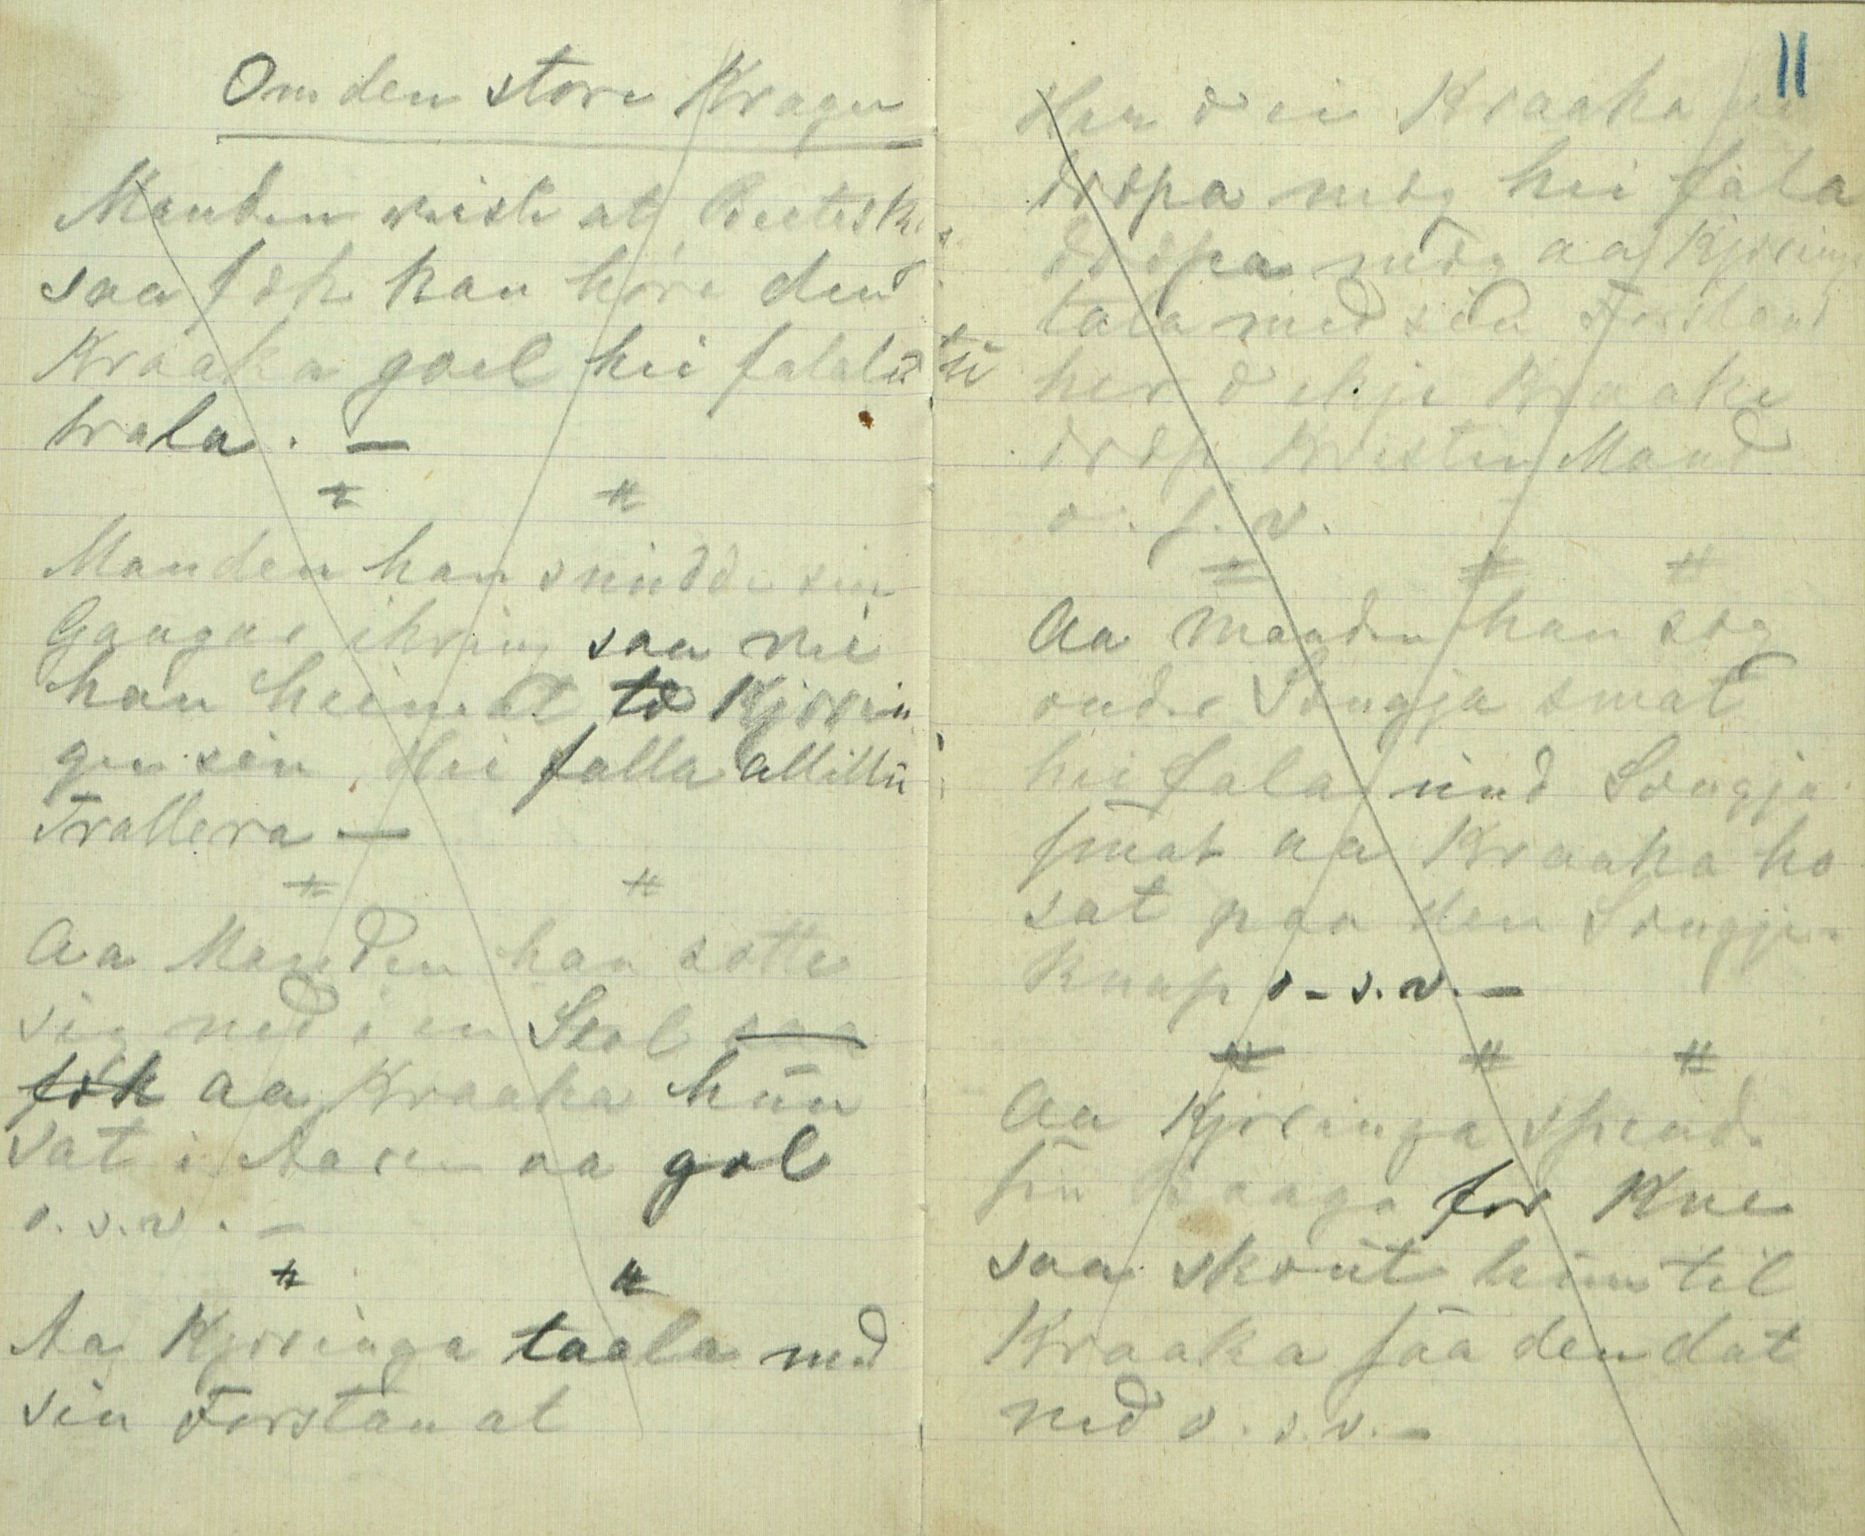 Om den store Kragen
Manden reiste at
saa fòk han höre den
Kraaka goel hei falala ti
trala. —
Manden han snudde sin
Gangar ikring saa rei
han heimat te Kjærin
gen sin. Hei falla allillü
Trallera —
Aa Manden han sette
sig ned i en Stol saa
fòk aa Kraaka hün
sat i Aasen aa gol
o.s.v. —
Aa Kjæringa taala med
sin Forstan at
11
Her æ ei Kraaka
dræpa mæg hei fala
dræpa mæg aa Kjæring
tala med sin Forstand
her æ ikje Kraake
dræp Kristen Mand
o.s.v.
Aa manden han sæg
onder Sængja smat
hei fala ünd Sængja
smat aa Kraaka ho
sat paa den Sængje-
knap o-s.v.—
Aa Kjæringa spende
sin Baaga for Kne
saa skøüt hün til
Kraaka saa den dat
ned o.s.v.—